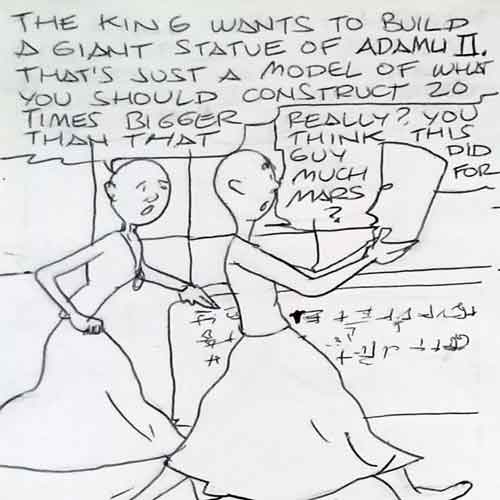 THE KING WANTS TO BUILD
A GIANT STATUE OF ADAMU II.
THAT'S JUST A MODEL OF WHAT
YOU SHOULD CONSTRUCT 20
TIMES BIGGER
THAN THAT
REALLY? YOU
THINK THIS
GUY DID
MUCH FOR
MARS
?